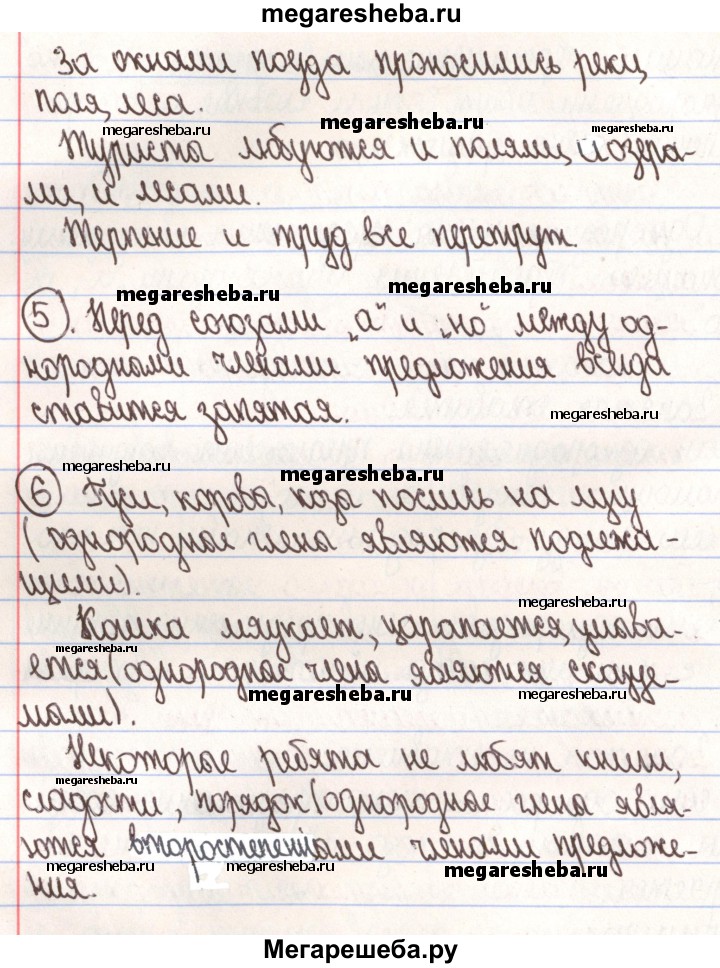 megaresheba.ru
За окнами поезда проносились реки,
поля, леса.
megaresheba.ru megaresheba.ru megaresheba.ru
Туристы любуются и полями, и озера-
ми, и лесами.
Терпение и труд все перетрут.
megaresheba.ru megaresheba.ru
5. Перед союзами „а" и „но" между од-
нородными членами предложения всегда
ставится запятая.
megaresheba.ru
megaresheba.ru megaresheba.ru
6 Гуси, корова, коза паслись на лугу
(однородные члены являются подлежа
щими).
megaresheba.ru
Кошка мяукает, царапается, умыва-
ется (однородные члены являются сказуе-
megaresheba.ru megaresheba.ru
мыми).
Некоторые ребята не любят книги,
megaresheba.ru megaresheba.ru
сладости, порядок (однородные члены явля-
ются второстепенными членами предложе-
megaresheba.ru megaresheba.ru megaresheba.ru
ния.
Мегарешеба.ру